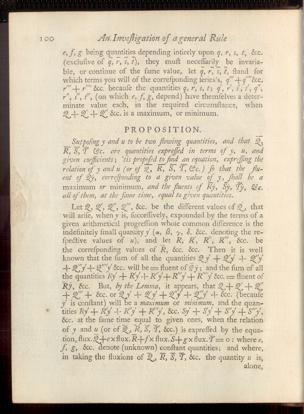 100 An Investigation of a general Rule
e, f, g being quantities depending intirely upon q, r, s, t, &c.
(exclusive of q̇, ṙ, ṡ, ṫ), they must necessarily be invaria-
ble, or continue of the same value, let q, r, s, t, stand for
which terms you will of the corresponding series's, q''+q''' &c.
r''+r''' &c. because the quantities q, r, s, t; q', r', s', t', q'',
r'', s'', t'', (on which e, f, g, depend) have themselves a deter-
minate value each, in the required circumstance, when
Q+Q'+Q'' &c. is a maximum, or minimum.
PROPOSITION.
Supposing y and u to be two flowing quantities, and that Q,
R, S, T &c. are quantities expressed in terms of y, u, and
given coefficients; 'tis proposed to find an equation, expressing the
relation of y and u (or of Q, R, S, T, &c.) so that the flu-
ent of Qẏ, corresponding to a given value of y, shall be a
maximum or minimum, and the fluents of Rẏ, Sẏ, Tẏ, &c.
all of them, at the same time, equal to given quantities.
Let Q, Q', Q'', Q''', &c. be the different values of Q, that
will arise, when y is, successively, expounded by the terms of a
given arithmetical progression whose common difference is the
indefinitely small quantity ẏ (α, β, γ, δ, &c. denoting the re-
spective values of u), and let R, R', R'', R''', &c. be
the corresponding values of R, &c. &c. Then it is well
known that the sum of all the quantities Qẏ + Q'ẏ + Q''ẏ
+ Q'''ẏ &c. will be = fluent of Qẏ; and the sum of all
the quantities Rẏ + R'ẏ + R''ẏ + R'''ẏ &c. = fluent of
Rẏ, &c. But, by the Lemma, it appears, that Q + Q' + Q''
+ Q''' + &c. or Qẏ + Q'ẏ + Q''ẏ + Q'''ẏ + &c. (because
ẏ is constant) will be a maximum or minimum, and the quan-
tities Rẏ + R'ẏ + R''ẏ + R'''ẏ, &c. Sẏ + S'ẏ + S''ẏ + S'''ẏ,
&c. at the same time equal to given ones, when the relation
of y and u (or of Q, R, S, T, &c.) is expressed by the equa-
tion, flux. Q+e×flux. R+f×flux. S+g×flux. T=0: where e,
f, g, &c. denote (unknown) constant quantities; and where,
in taking the fluxions of Q, R, S, T, &c. the quantity u is,
alone,